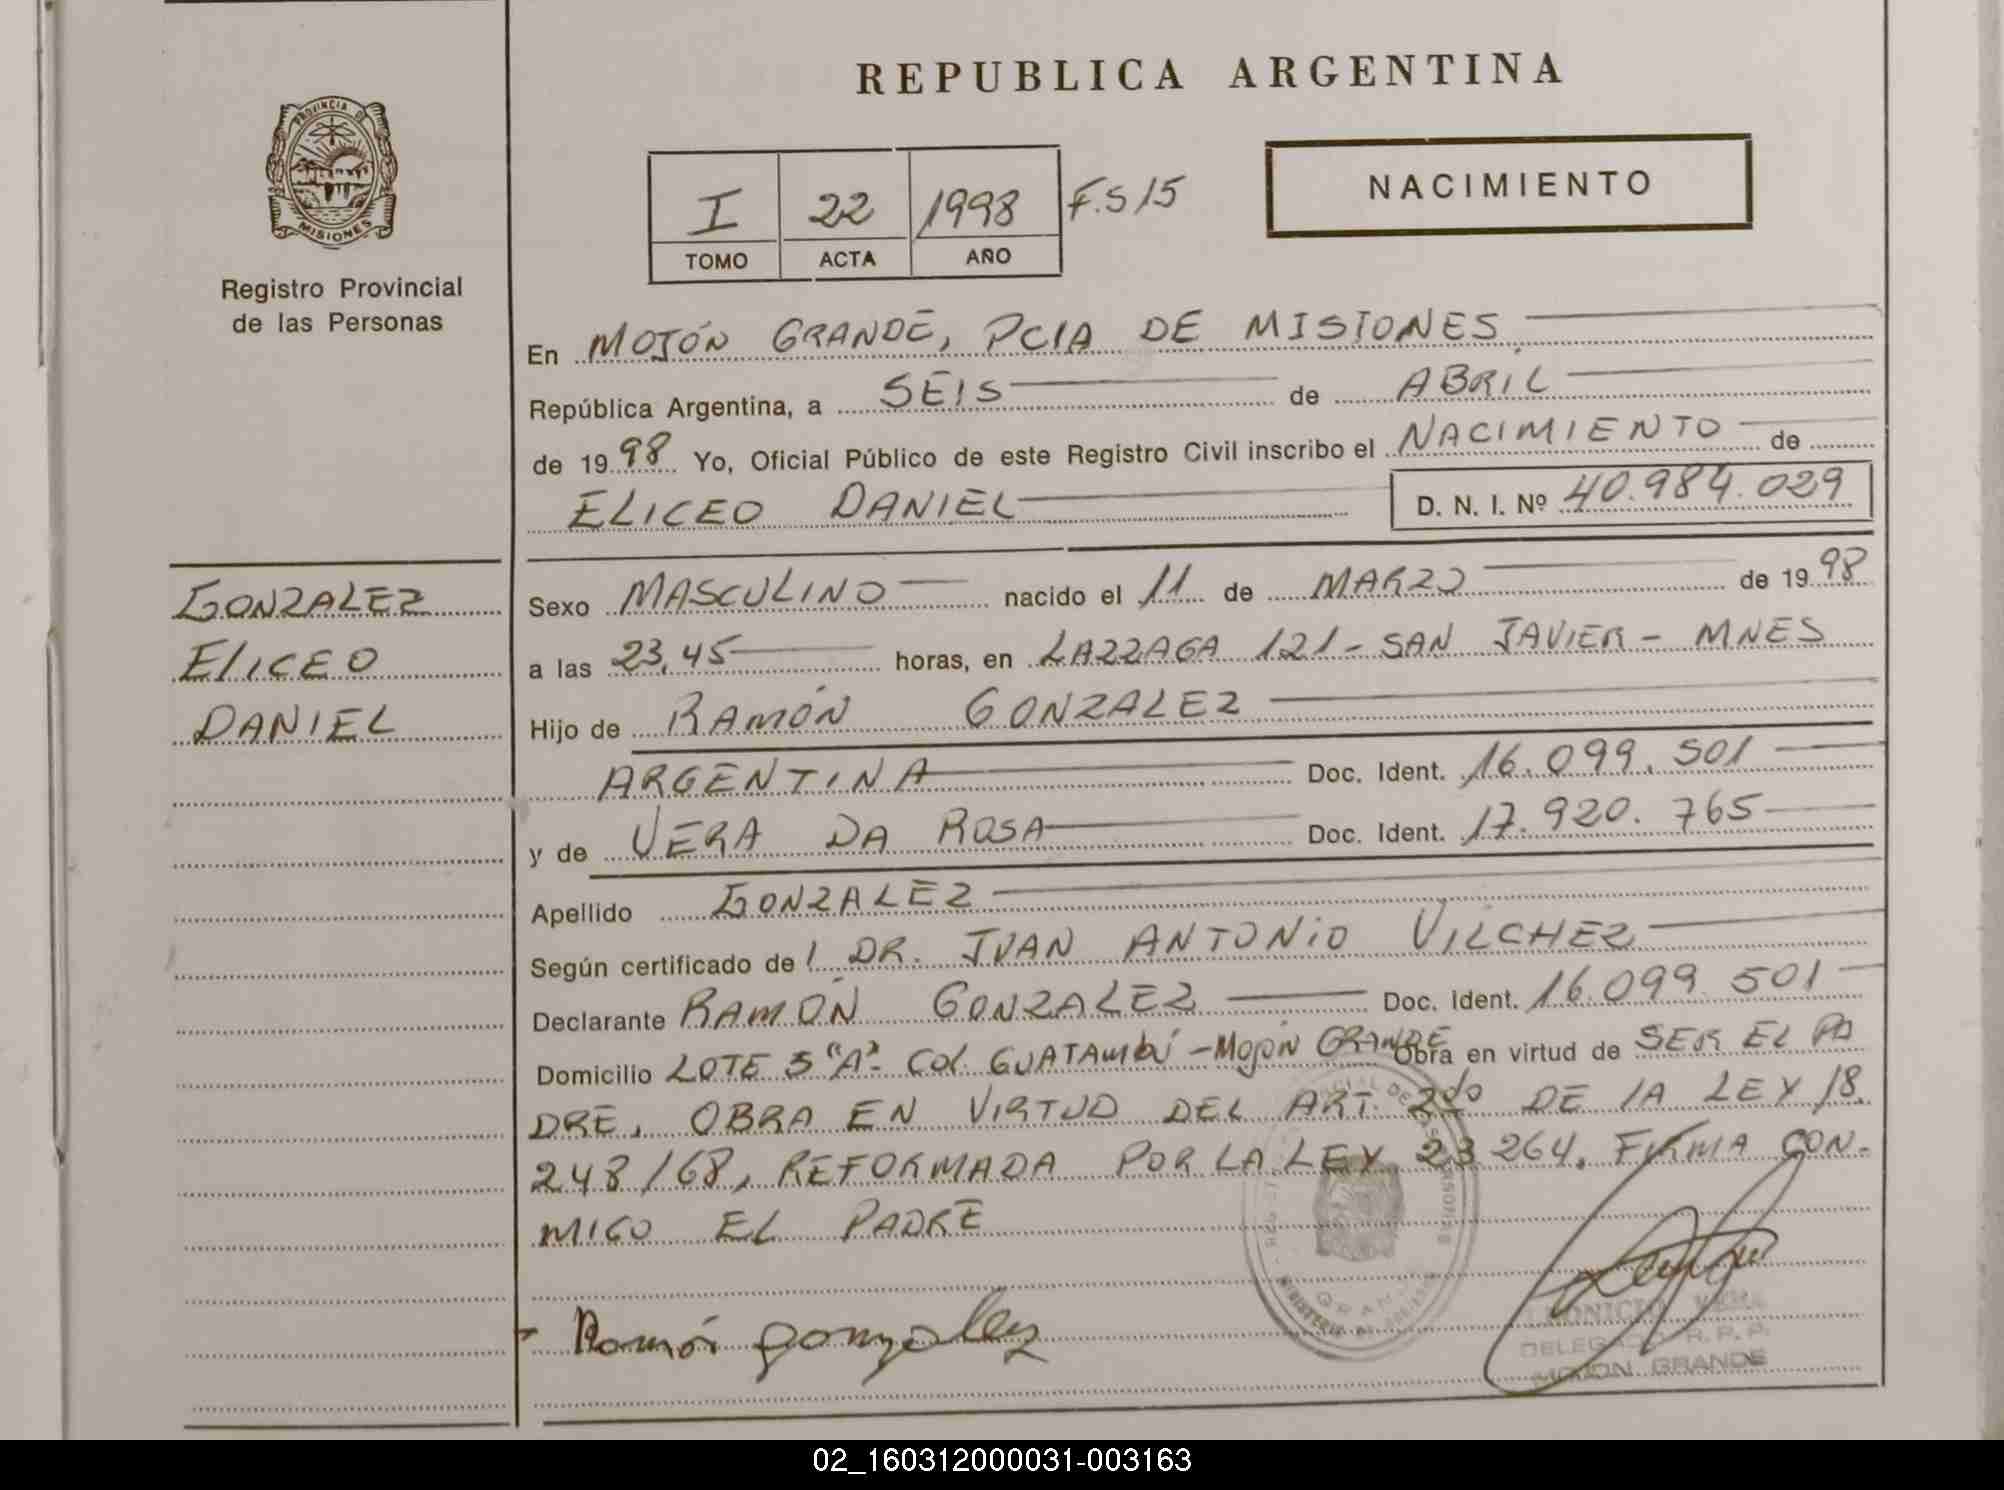 REPUBLICA ARGENTINA
PROVINCIA DE
MISIONES
Registro Provincial
de las Personas
NACIMIENTO
I 22 1998 F.S 15
TOMO ACTA AÑO
En MOJÓN GRANDE, PCIA DE MISIONES
República Argentina, a SEIS de ABRIL
de 1998 Yo, Oficial Público de este Registro Civil inscribo el NACIMIENTO de
ELICEO DANIEL D. N. I. Nº 40.984.029
GONZALEZ
ELICEO
DANIEL
Sexo MASCULINO nacido el 11 de MARZO de 1998
a las 23,45 horas, en LAZZAGA 121 - SAN JAVIER - MNES
Hijo de RAMÓN GONZALEZ
ARGENTINA Doc. Ident. 16.099.501
y de VERA DA ROSA Doc. Ident. 17.920.765
Apellido GONZALEZ
Según certificado de DR. JUAN ANTONIO VILCHEZ
Declarante RAMÓN GONZALEZ Doc. Ident. 16.099 501
Domicilio LOTE 5 "A" COL. GUATAMBÚ - MOJÓN GRANDE Obra en virtud de SER EL PA
DRE, OBRA EN VIRTUD DEL ART. 2do DE LA LEY 18.
248/68, REFORMADA POR LA LEY 23 264. FIRMA CON-
MIGO EL PADRE
Ramón gonzalez
DELEGADO R. P. P.
MOJON GRANDE
02_160312000031-003163